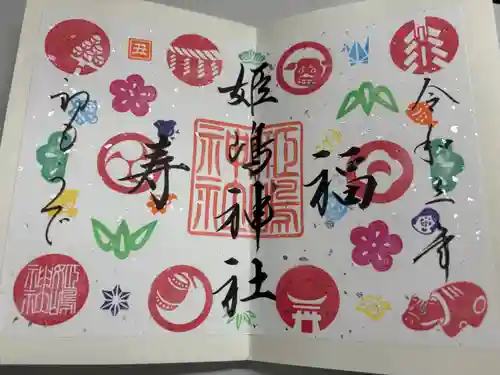 令和三年
福
姫嶋神社
姫嶋
神社
寿
丑
初もうで
姫嶋
神社